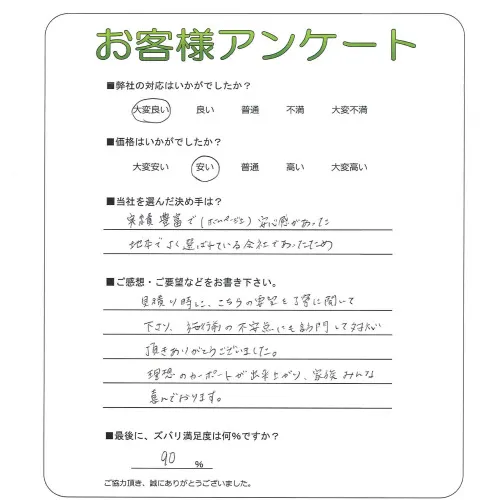 お客様アンケート
■弊社の対応はいかがでしたか？
大変良い 良い 普通 不満 大変不満
■価格はいかがでしたか？
大変安い 安い 普通 高い 大変高い
■当社を選んだ決め手は？
実績豊富で(ホームページ)安心感があった
地本でよく選ばれている会社であったため
■ご感想・ご要望などをお書き下さい。
見積り時に、こちらの要望を丁寧に聞いて
下さり、施行前の不安点にも訪問して対応
頂きありがとうございました。
理想のカーポートが出来上がり、家族みんな
喜んでおります。
■最後に、ズバリ満足度は何%ですか？
90 %
ご協力頂き、誠にありがとうございました。